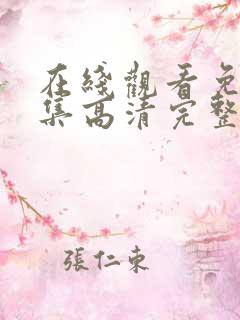 在綫觀看免
集高清完整
張仁東